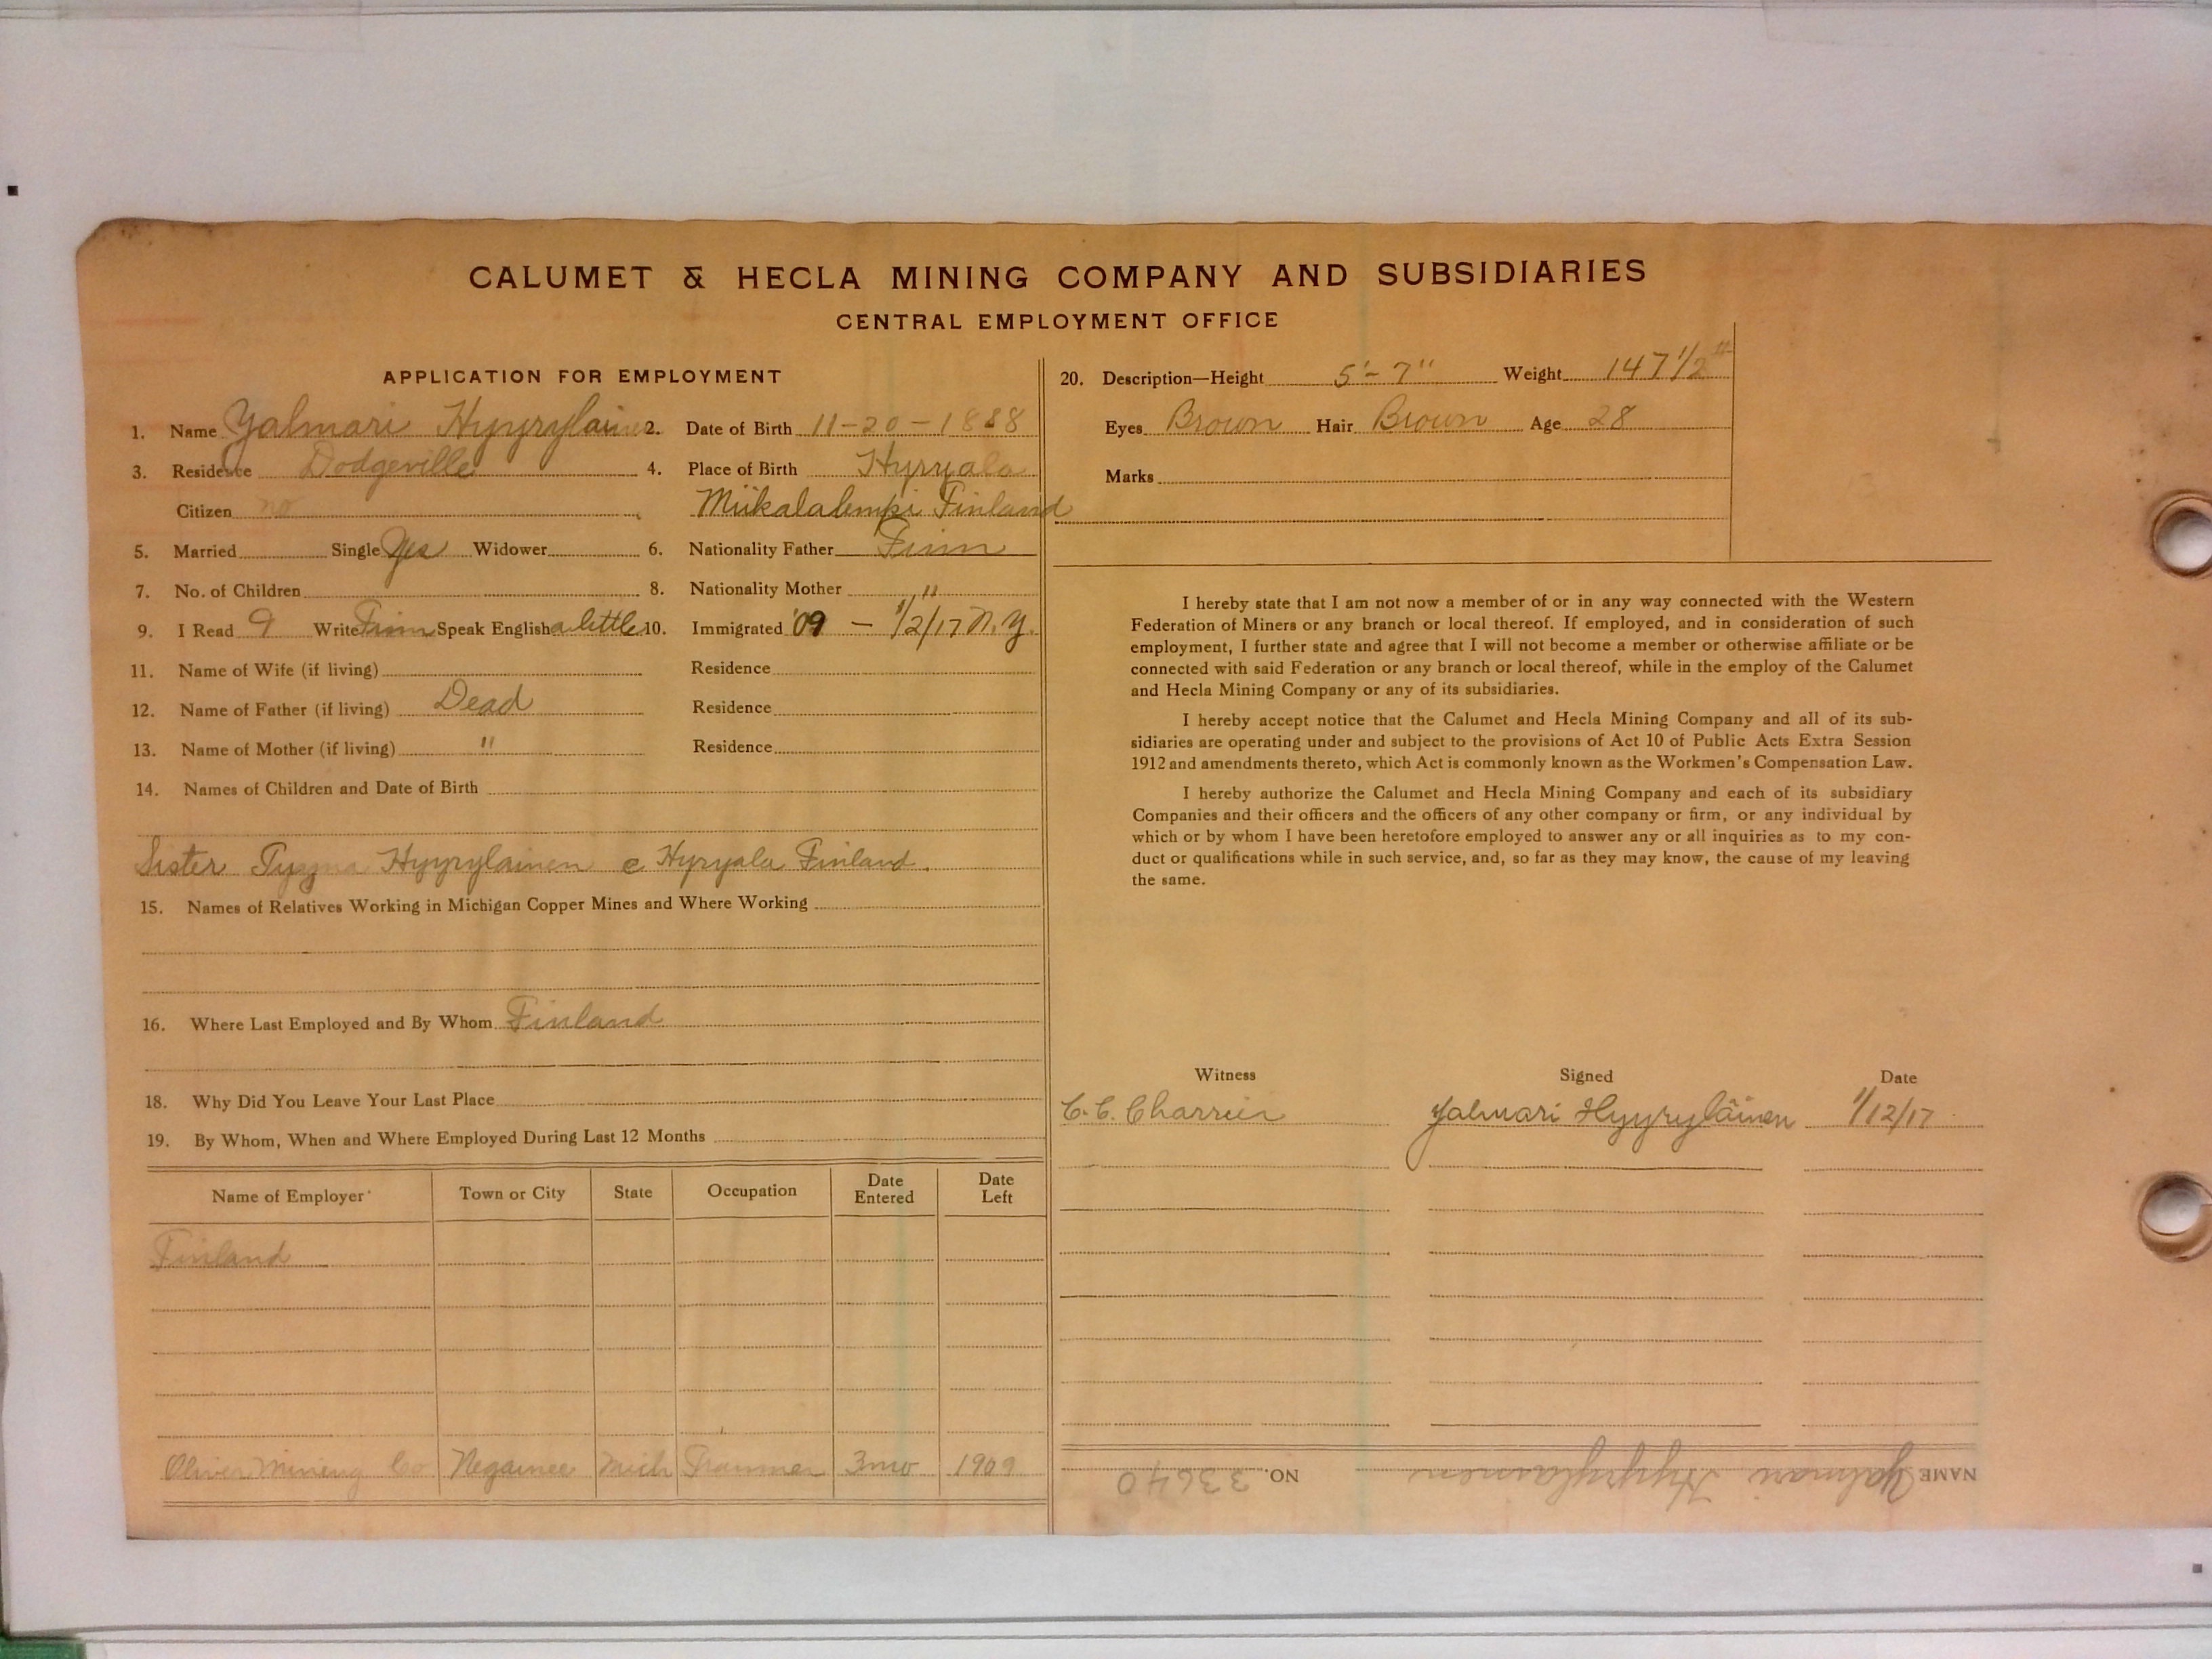 CALUMET & HECLA MINING COMPANY AND SUBSIDIARIES
CENTRAL EMPLOYMENT OFFICE
APPLICATION FOR EMPLOYMENT
1. Name Yalmari Hyyrylainen 2. Date of Birth 11-20-1888
3. Residence Dodgeville 4. Place of Birth Hyryala
Citizen no Miikalalempi Finland
5. Married Single Yes Widower 6. Nationality Father Finn
7. No. of Children 8. Nationality Mother "
9. I Read 9 Write Finn Speak English a little 10. Immigrated '09 - 1/2/17 N.Y.
11. Name of Wife (if living) Residence
12. Name of Father (if living) Dead Residence
13. Name of Mother (if living) " Residence
14. Names of Children and Date of Birth
Sister Hyyrylainen Hyryala Finland.
15. Names of Relatives Working in Michigan Copper Mines and Where Working
16. Where Last Employed and By Whom Finland
18. Why Did You Leave Your Last Place
19. By Whom, When and Where Employed During Last 12 Months
Name of Employer Town or City State Occupation Date Entered Date Left
Finland
Oliver Mining Co Negaunee Mich Trammer 3mo 1909
20. Description—Height 5'-7" Weight 147 1/2
Eyes Brown Hair Brown Age 28
Marks
I hereby state that I am not now a member of or in any way connected with the Western
Federation of Miners or any branch or local thereof. If employed, and in consideration of such
employment, I further state and agree that I will not become a member or otherwise affiliate or be
connected with said Federation or any branch or local thereof, while in the employ of the Calumet
and Hecla Mining Company or any of its subsidiaries.
I hereby accept notice that the Calumet and Hecla Mining Company and all of its sub-
sidiaries are operating under and subject to the provisions of Act 10 of Public Acts Extra Session
1912 and amendments thereto, which Act is commonly known as the Workmen's Compensation Law.
I hereby authorize the Calumet and Hecla Mining Company and each of its subsidiary
Companies and their officers and the officers of any other company or firm, or any individual by
which or by whom I have been heretofore employed to answer any or all inquiries as to my con-
duct or qualifications while in such service, and, so far as they may know, the cause of my leaving
the same.
Witness Signed Date
C. C. Charrier Yalmari Hyyryläinen 1/12/17
NAME Yalmari Hyyrylainen NO. 33640